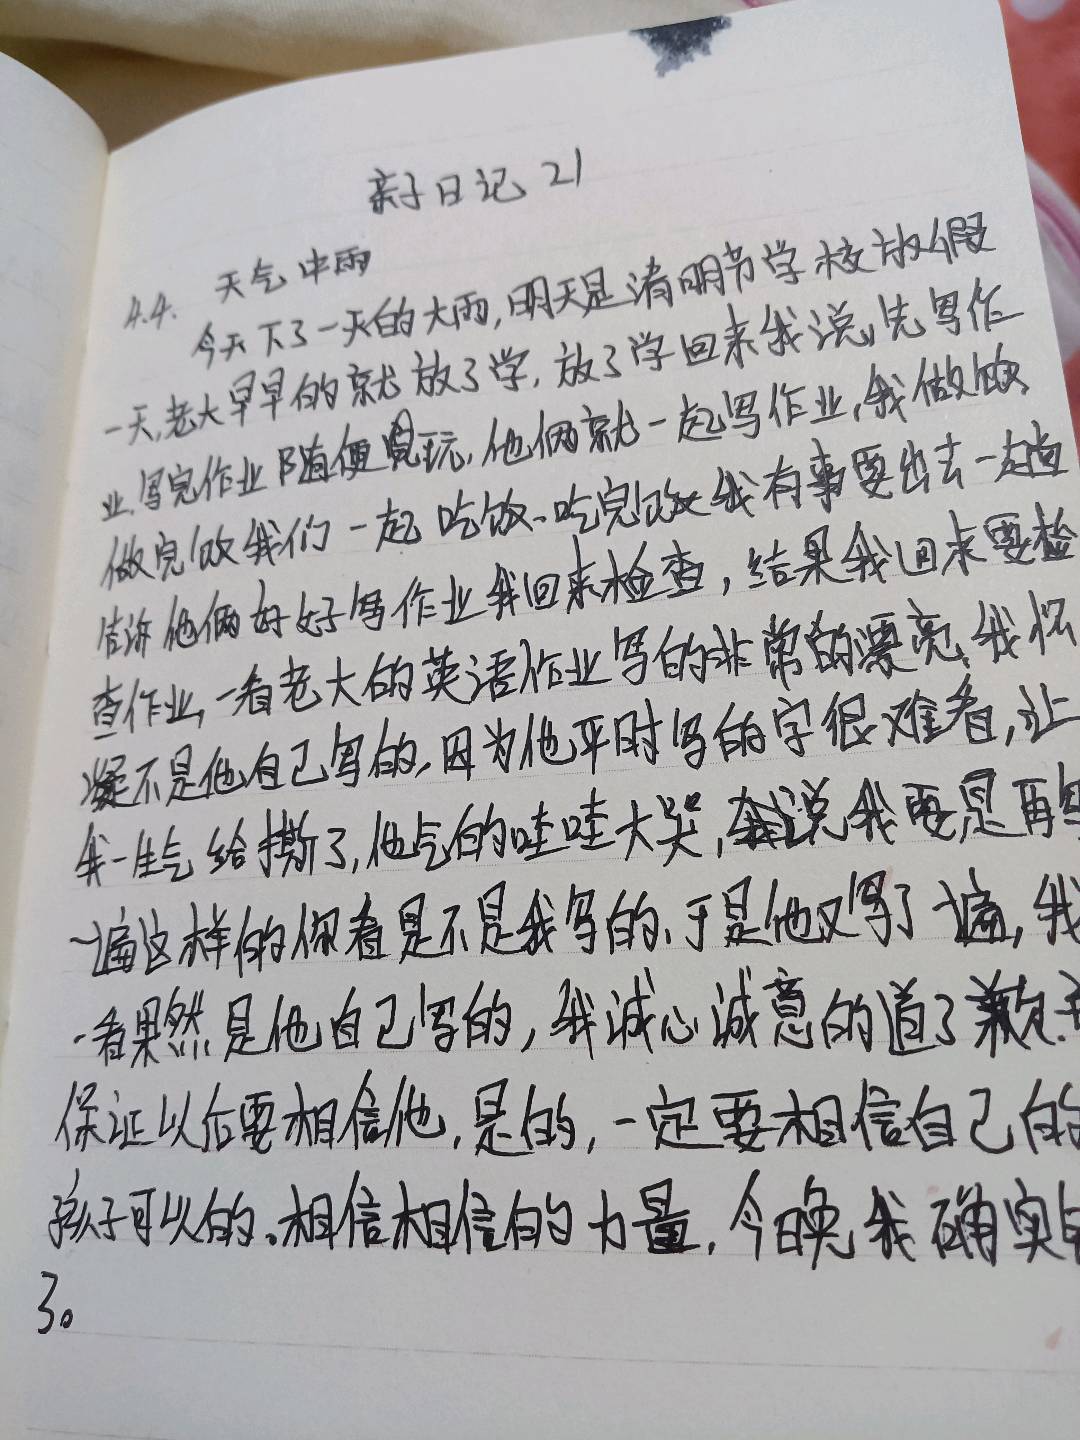 亲子日记 21
4.4. 天气 中雨
今天下了一天的大雨,明天是清明节学校放假
一天,老大早早的就放了学,放了学回来我说,先写作
业,写完作业随便玩,他俩就一起写作业,我做饭,
做完饭我们一起吃饭、吃完饭我有事要出去一趟
告诉他俩好好写作业我回来检查,结果我回来要检
查作业,一看老大的英语作业写的非常的漂亮,我怀
疑不是他自己写的,因为他平时写的字很难看,让
我一生气给撕了,他气的哇哇大哭,说我要是再写
一遍这样的你看是不是我写的、于是他又写了一遍,我
一看果然是他自己写的,我诚心诚意的道了歉.
保证以后要相信他,是的,一定要相信自己的
孩子可以的。相信相信的力量,今晚我确实
了。